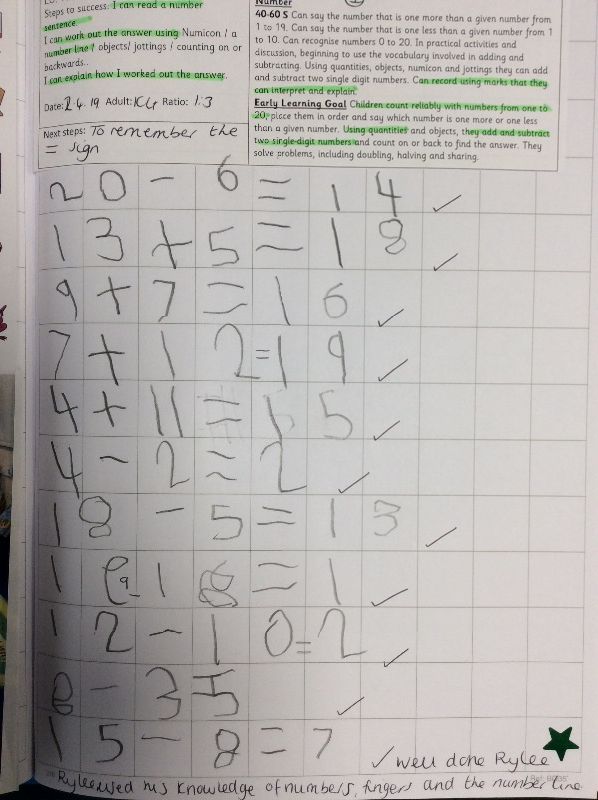 Steps to success: I can read a number
sentence.
I can work out the answer using Numicon / a
number line / objects/ jottings / counting on or
backwards..
I can explain how I worked out the answer.
Date: 2.4.19 Adult: KG Ratio: 1:3
Next steps: To remember the
= sign
Number
40-60 S Can say the number that is one more than a given number from
1 to 19. Can say the number that is one less than a given number from 1
to 10. Can recognise numbers 0 to 20. In practical activities and
discussion, beginning to use the vocabulary involved in adding and
subtracting. Using quantities, objects, numicon and jottings they can add
and subtract two single digit numbers. Can record using marks that they
can interpret and explain.
Early Learning Goal Children count reliably with numbers from one to
20, place them in order and say which number is one more or one less
than a given number. Using quantities and objects, they add and subtract
two single-digit numbers and count on or back to find the answer. They
solve problems, including doubling, halving and sharing.
20 - 6 = 14 ✓
13 + 5 = 18 ✓
9 + 7 = 16 ✓
7 + 12 = 19 ✓
4 + 11 = 15 ✓
4 - 2 = 2 ✓
18 - 5 = 13 ✓
19 - 18 = 1 ✓
12 - 10 = 2 ✓
8 - 3 5 ✓
15 - 8 = 7 ✓ well done Rylee
Rylee used his knowledge of numbers, fingers and the number line